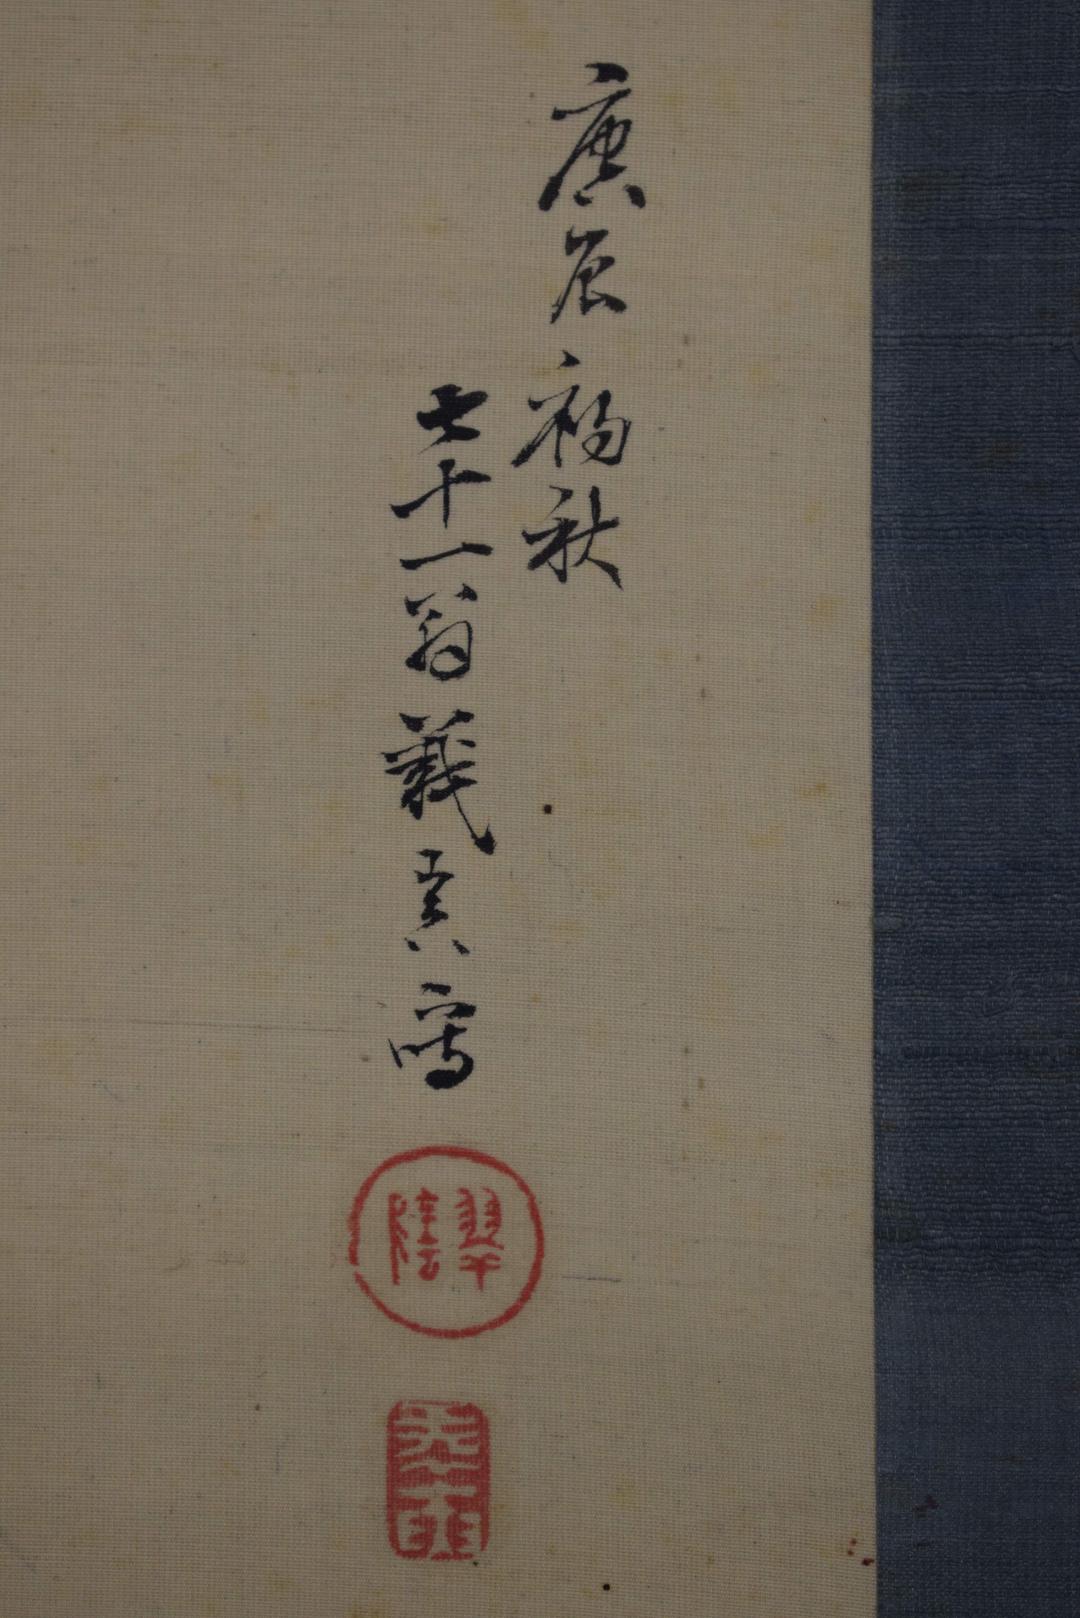 庚辰初秋
七十一翁義真寫
翠陰